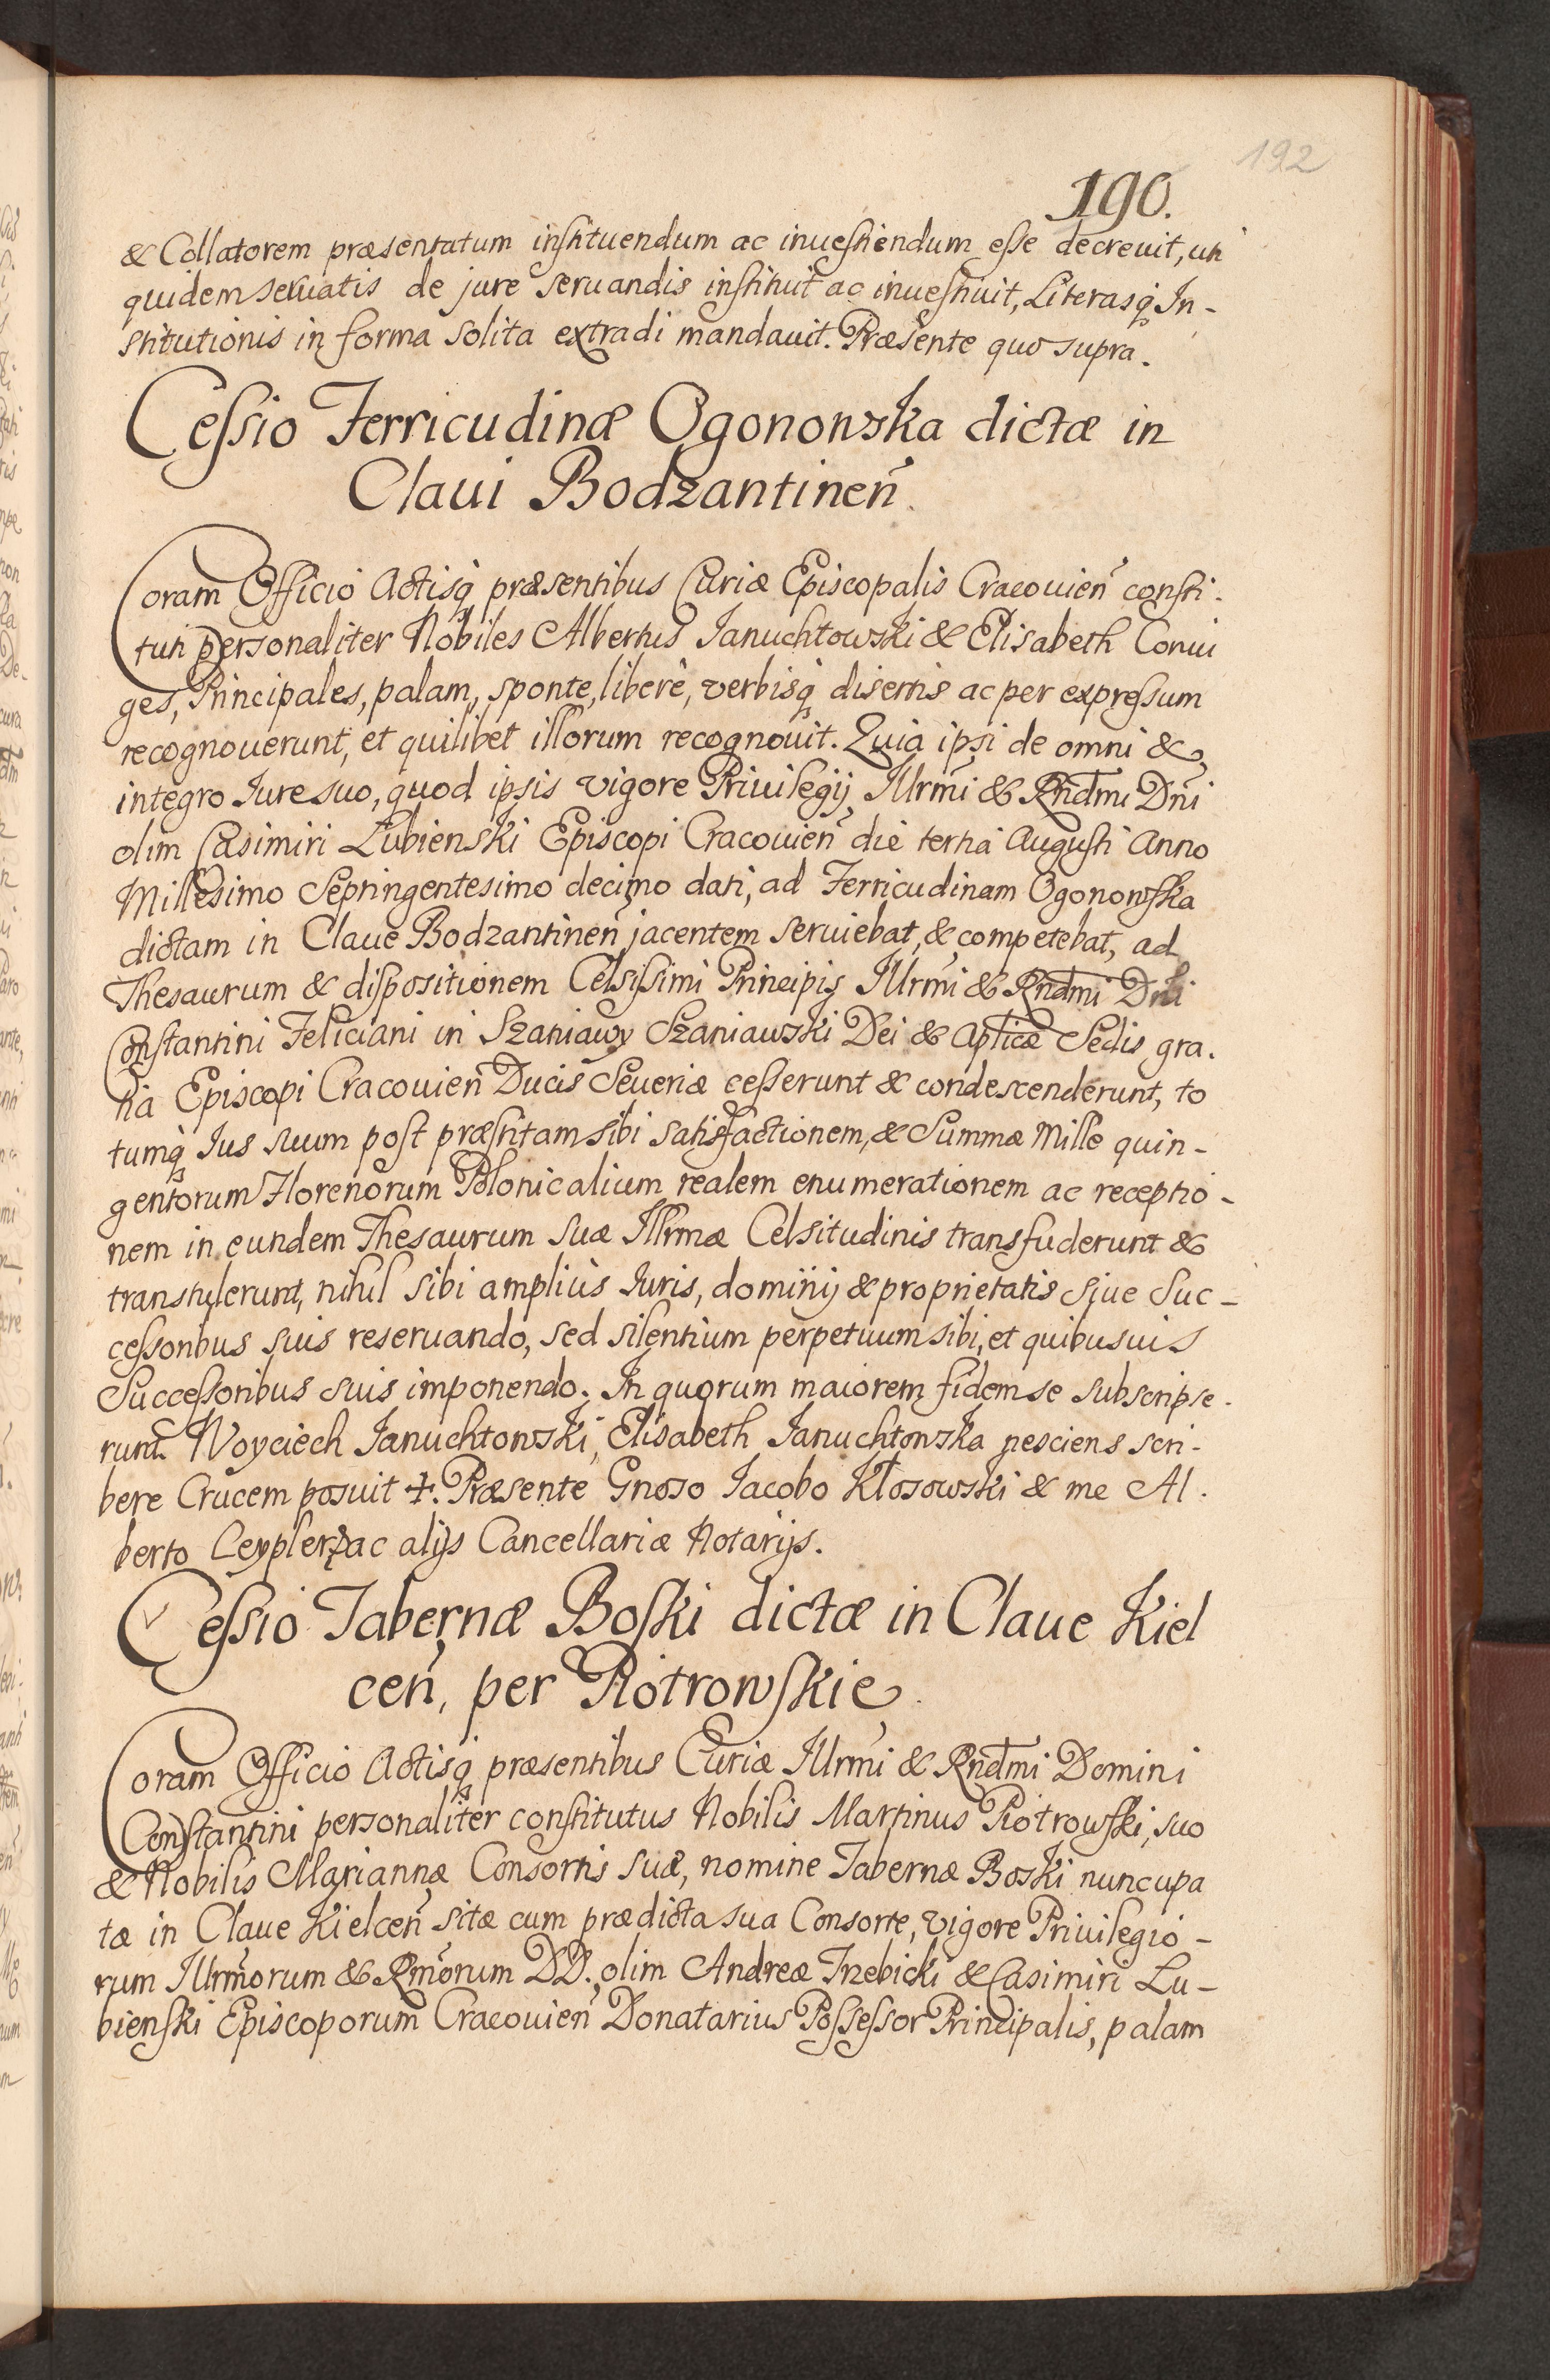 192
190.
& Collatorem præsentatum instituendum ac inuestiendum esse decreuit, uti
quidem seruatis de jure seruandis instituit ac inuestiuit, Literasq̃ In-
stitutionis in forma solita extradi mandauit. Præsente quo supra.
Cessio Ferricudinæ Ogonowska dictæ in
Claui Bodzantinen̄.
Coram Officio Actisq̃ præsentibus Curiæ Episcopalis Cracouien̄ consti-
tuti personaliter Nobiles Albertus Januchtowski & Elisabeth Coniu
ges, Principales, palam, sponte, liberè, verbisq̃ disertis ac per expressum
recognouerunt, et quilibet illorum recognouit. Quia ipsi de omni &
integro Jure suo, quod ipsis vigore Priuilegij Illrm̄i & Rnd̄mi Dn̄i
olim Casimiri Łubienski Episcopi Cracouien̄ die tertia Augusti Anno
Millesimo Septingentesimo decimo dati, ad Ferricudinam Ogonowska
dictam in Claue Bodzantinen̄ jacentem seruiebat, & competebat, ad
Thesaurum & dispositionem Celsissimi Principis Illrm̄i & Rnd̄mi Dn̄i
Constantini Feliciani in Szaniawy Szaniawski Dei & Aplicæ Sedis gra-
tia Episcopi Cracouien̄ Ducis Seueriæ cesserunt & condescenderunt, to
tumq̃ Jus suum post præstitam sibi satisfactionem, & Summæ Mille quin-
gentorum Florenorum Polonicalium realem enumerationem ac receptio-
nem in eundem Thesaurum Suæ Illrmæ Celsitudinis transfuderunt &
transtulerunt, nihil sibi amplius Juris, dominij & proprietatis siue Suc-
cessoribus suis reseruando, sed silentium perpetuum sibi, et quibusuis
Successoribus suis imponendo. In quorum maiorem fidem se subscripse-
runt. Woyciech Januchtowski, Elisabeth Januchtowska nesciens scri-
bere Crucem posuit ┼. Præsente Gnoso Jacobo Kłosowski & me Al-
berto Ceypler ac alijs Cancellariæ Notarijs.
Cessio Tabernæ Boski dictæ in Claue Kiel
cen̄, per Piotrowskie.
Coram Officio Actisq̃ præsentibus Curiæ Illrm̄i & Rnd̄mi Domini
Constantini personaliter constitutus Nobilis Martinus Piotrowski, suo
& Nobilis Mariannæ Consortis suæ, nomine Tabernæ Boski nuncupa
tæ in Claue Kielcen̄ sitæ cum prædicta sua Consorte, vigore Priuilegio-
rum Illrm̄orum & Rm̄orum DD. olim Andreæ Trzebicki & Casimiri Lu-
bienski Episcoporum Cracouien̄ Donatarius Possessor Principalis, palam